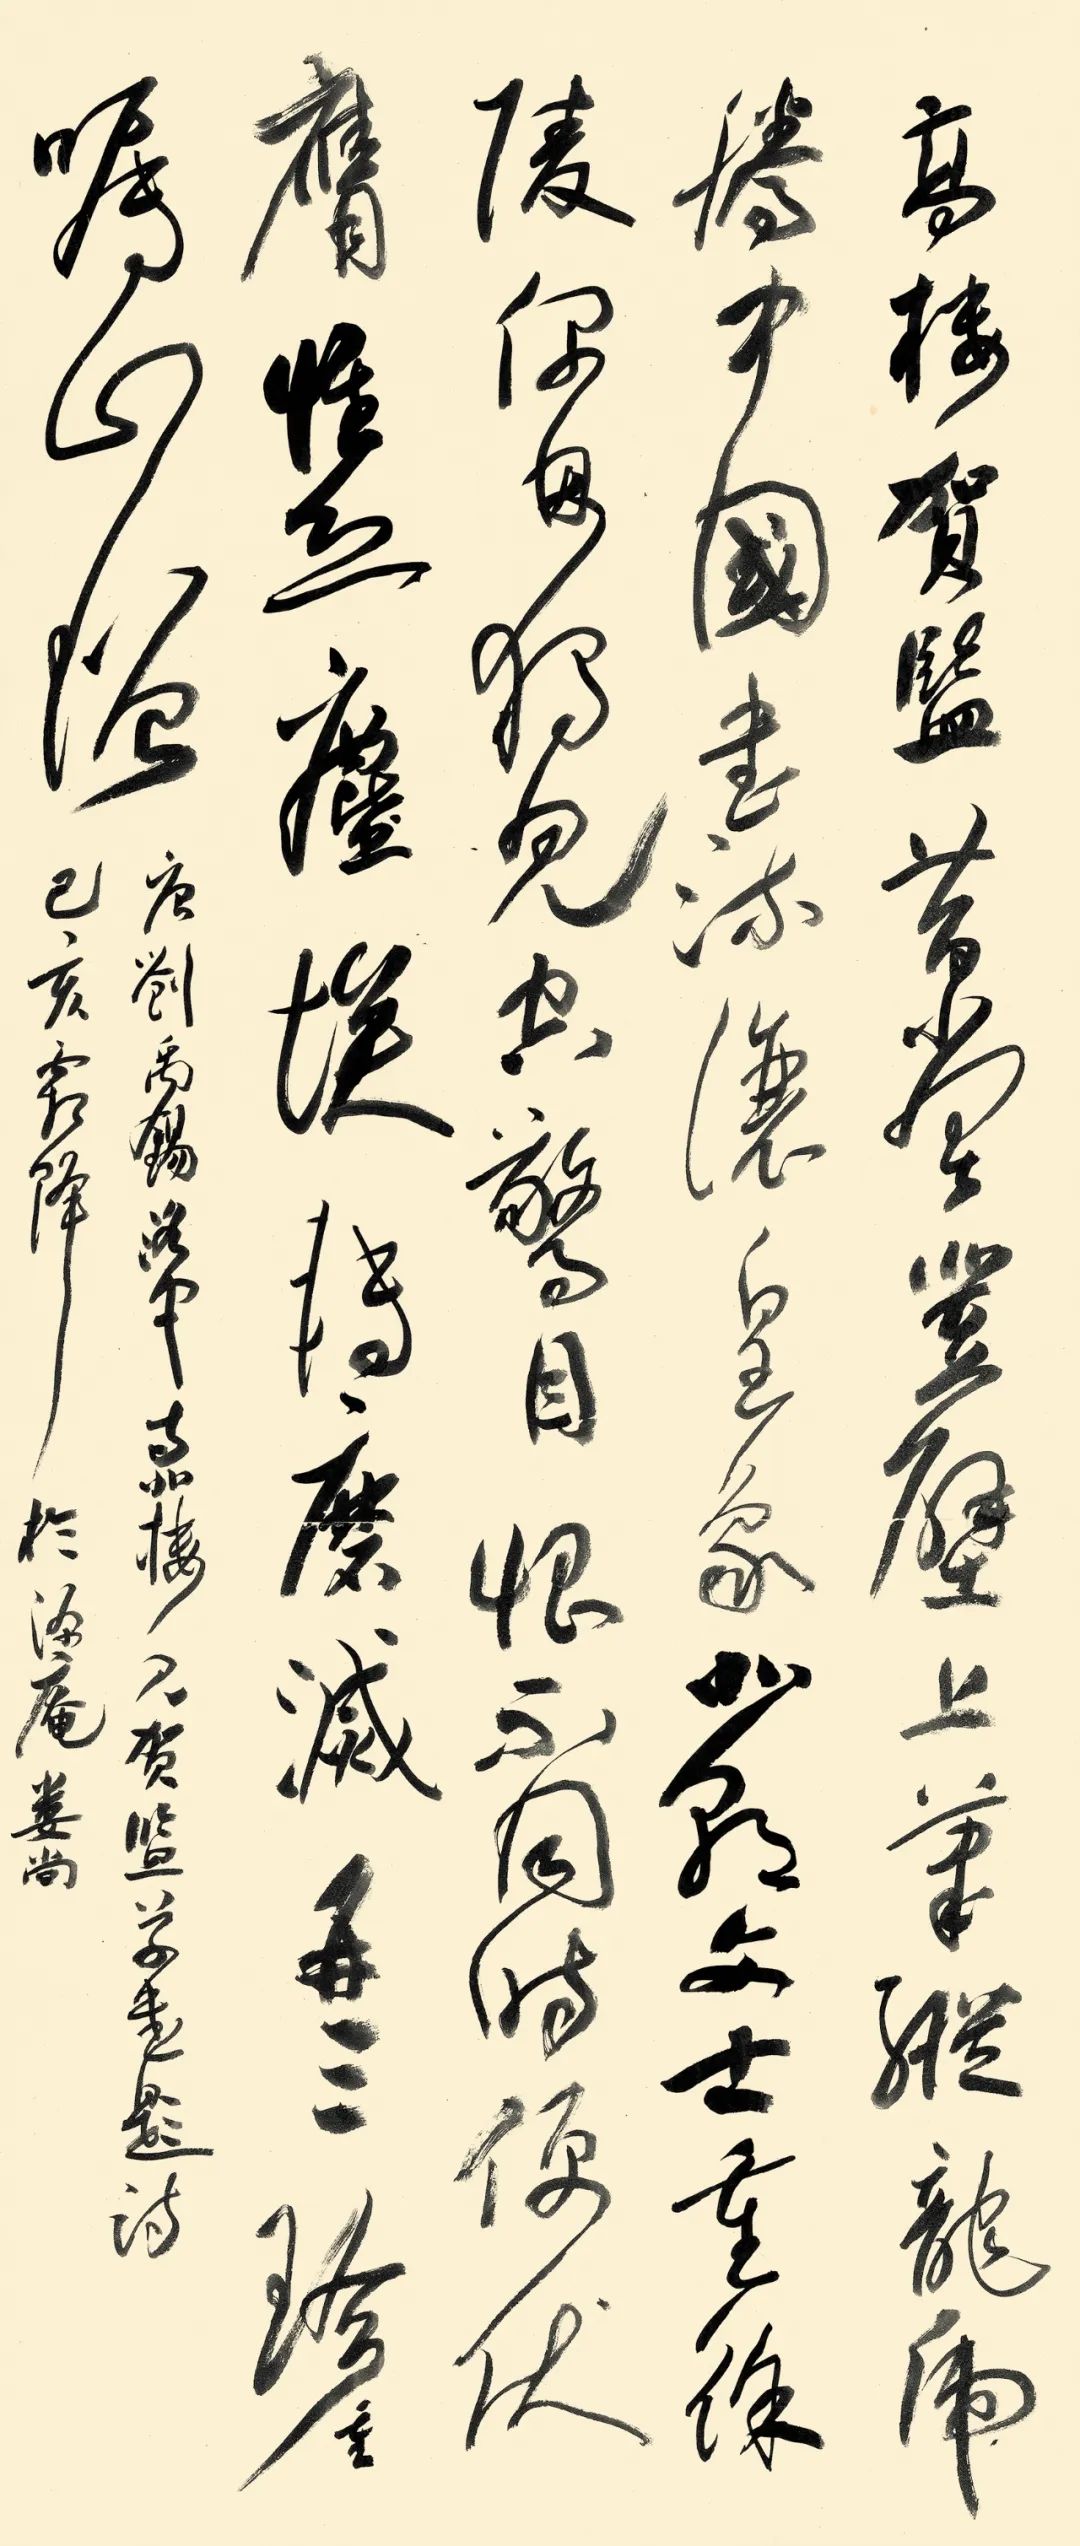 高樓賀監昔曾登壁上筆縱龍虎
騰中國書流讓皇象北朝文士重徐
陵偶因獨見空驚目恨不同時便伏
膺惟恐塵埃轉磨滅再三珍重
囑山僧
唐劉禹錫洛中寺北樓見賀監草書題詩
己亥霜降於庵婁尚